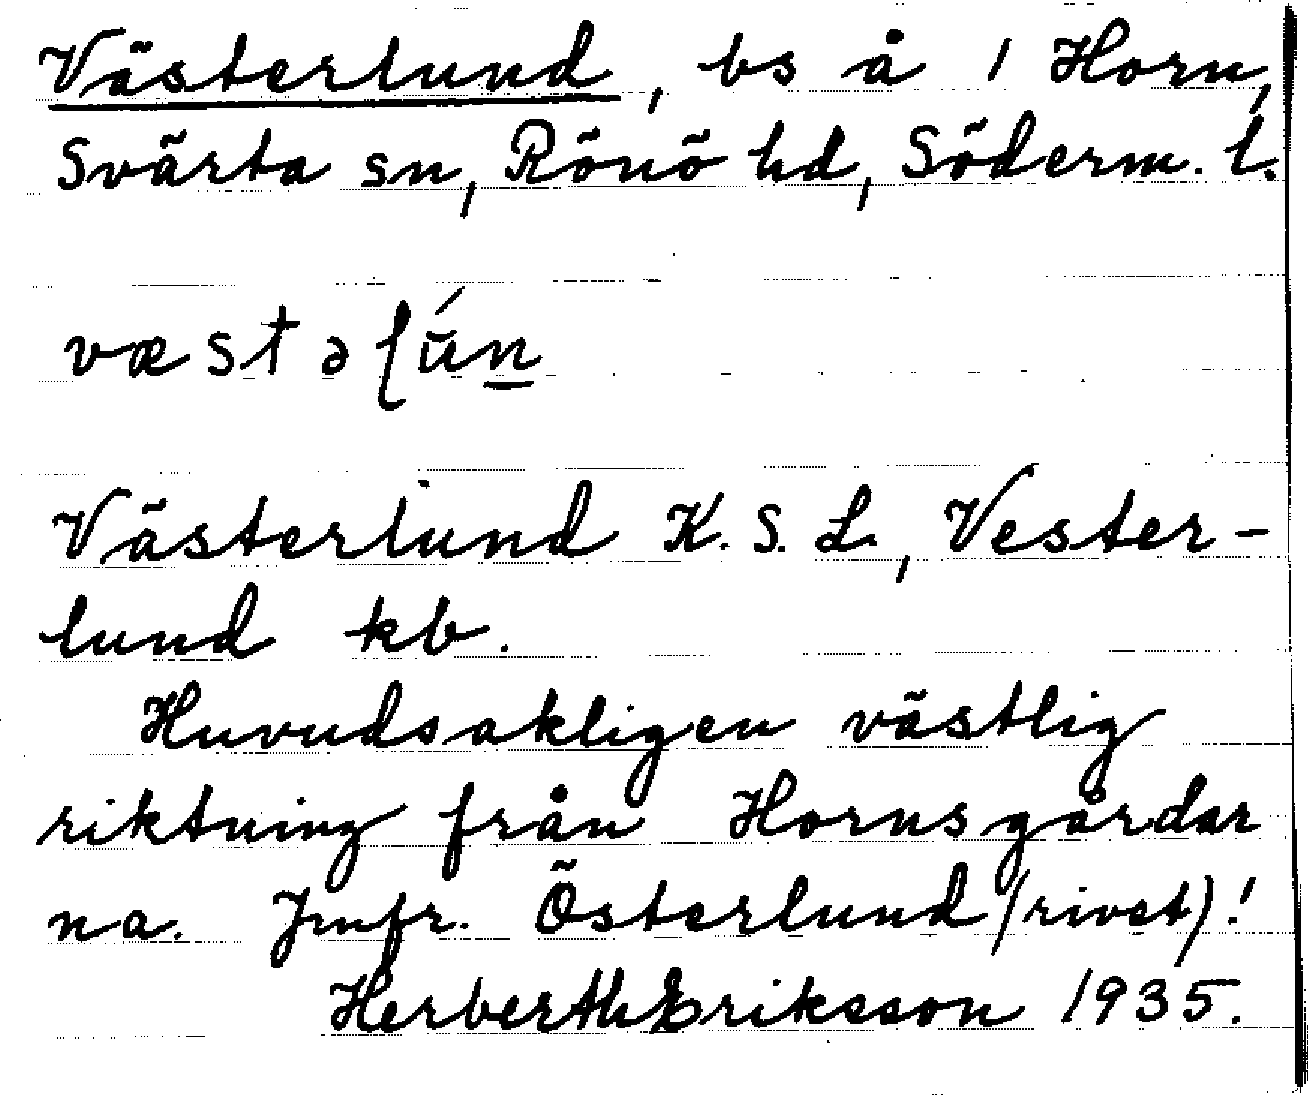 Västerlund, bs å 1 Horn,
Svärta sn, Rönö hd, Söderm. l.
væstəɭún
Västerlund K. S. L., Vester-
lund kb.
Huvudsakligen västlig
riktning från Hornsgårdar
na. Jmfr. Österlund (rivet)!
Herberth Eriksson 1935.